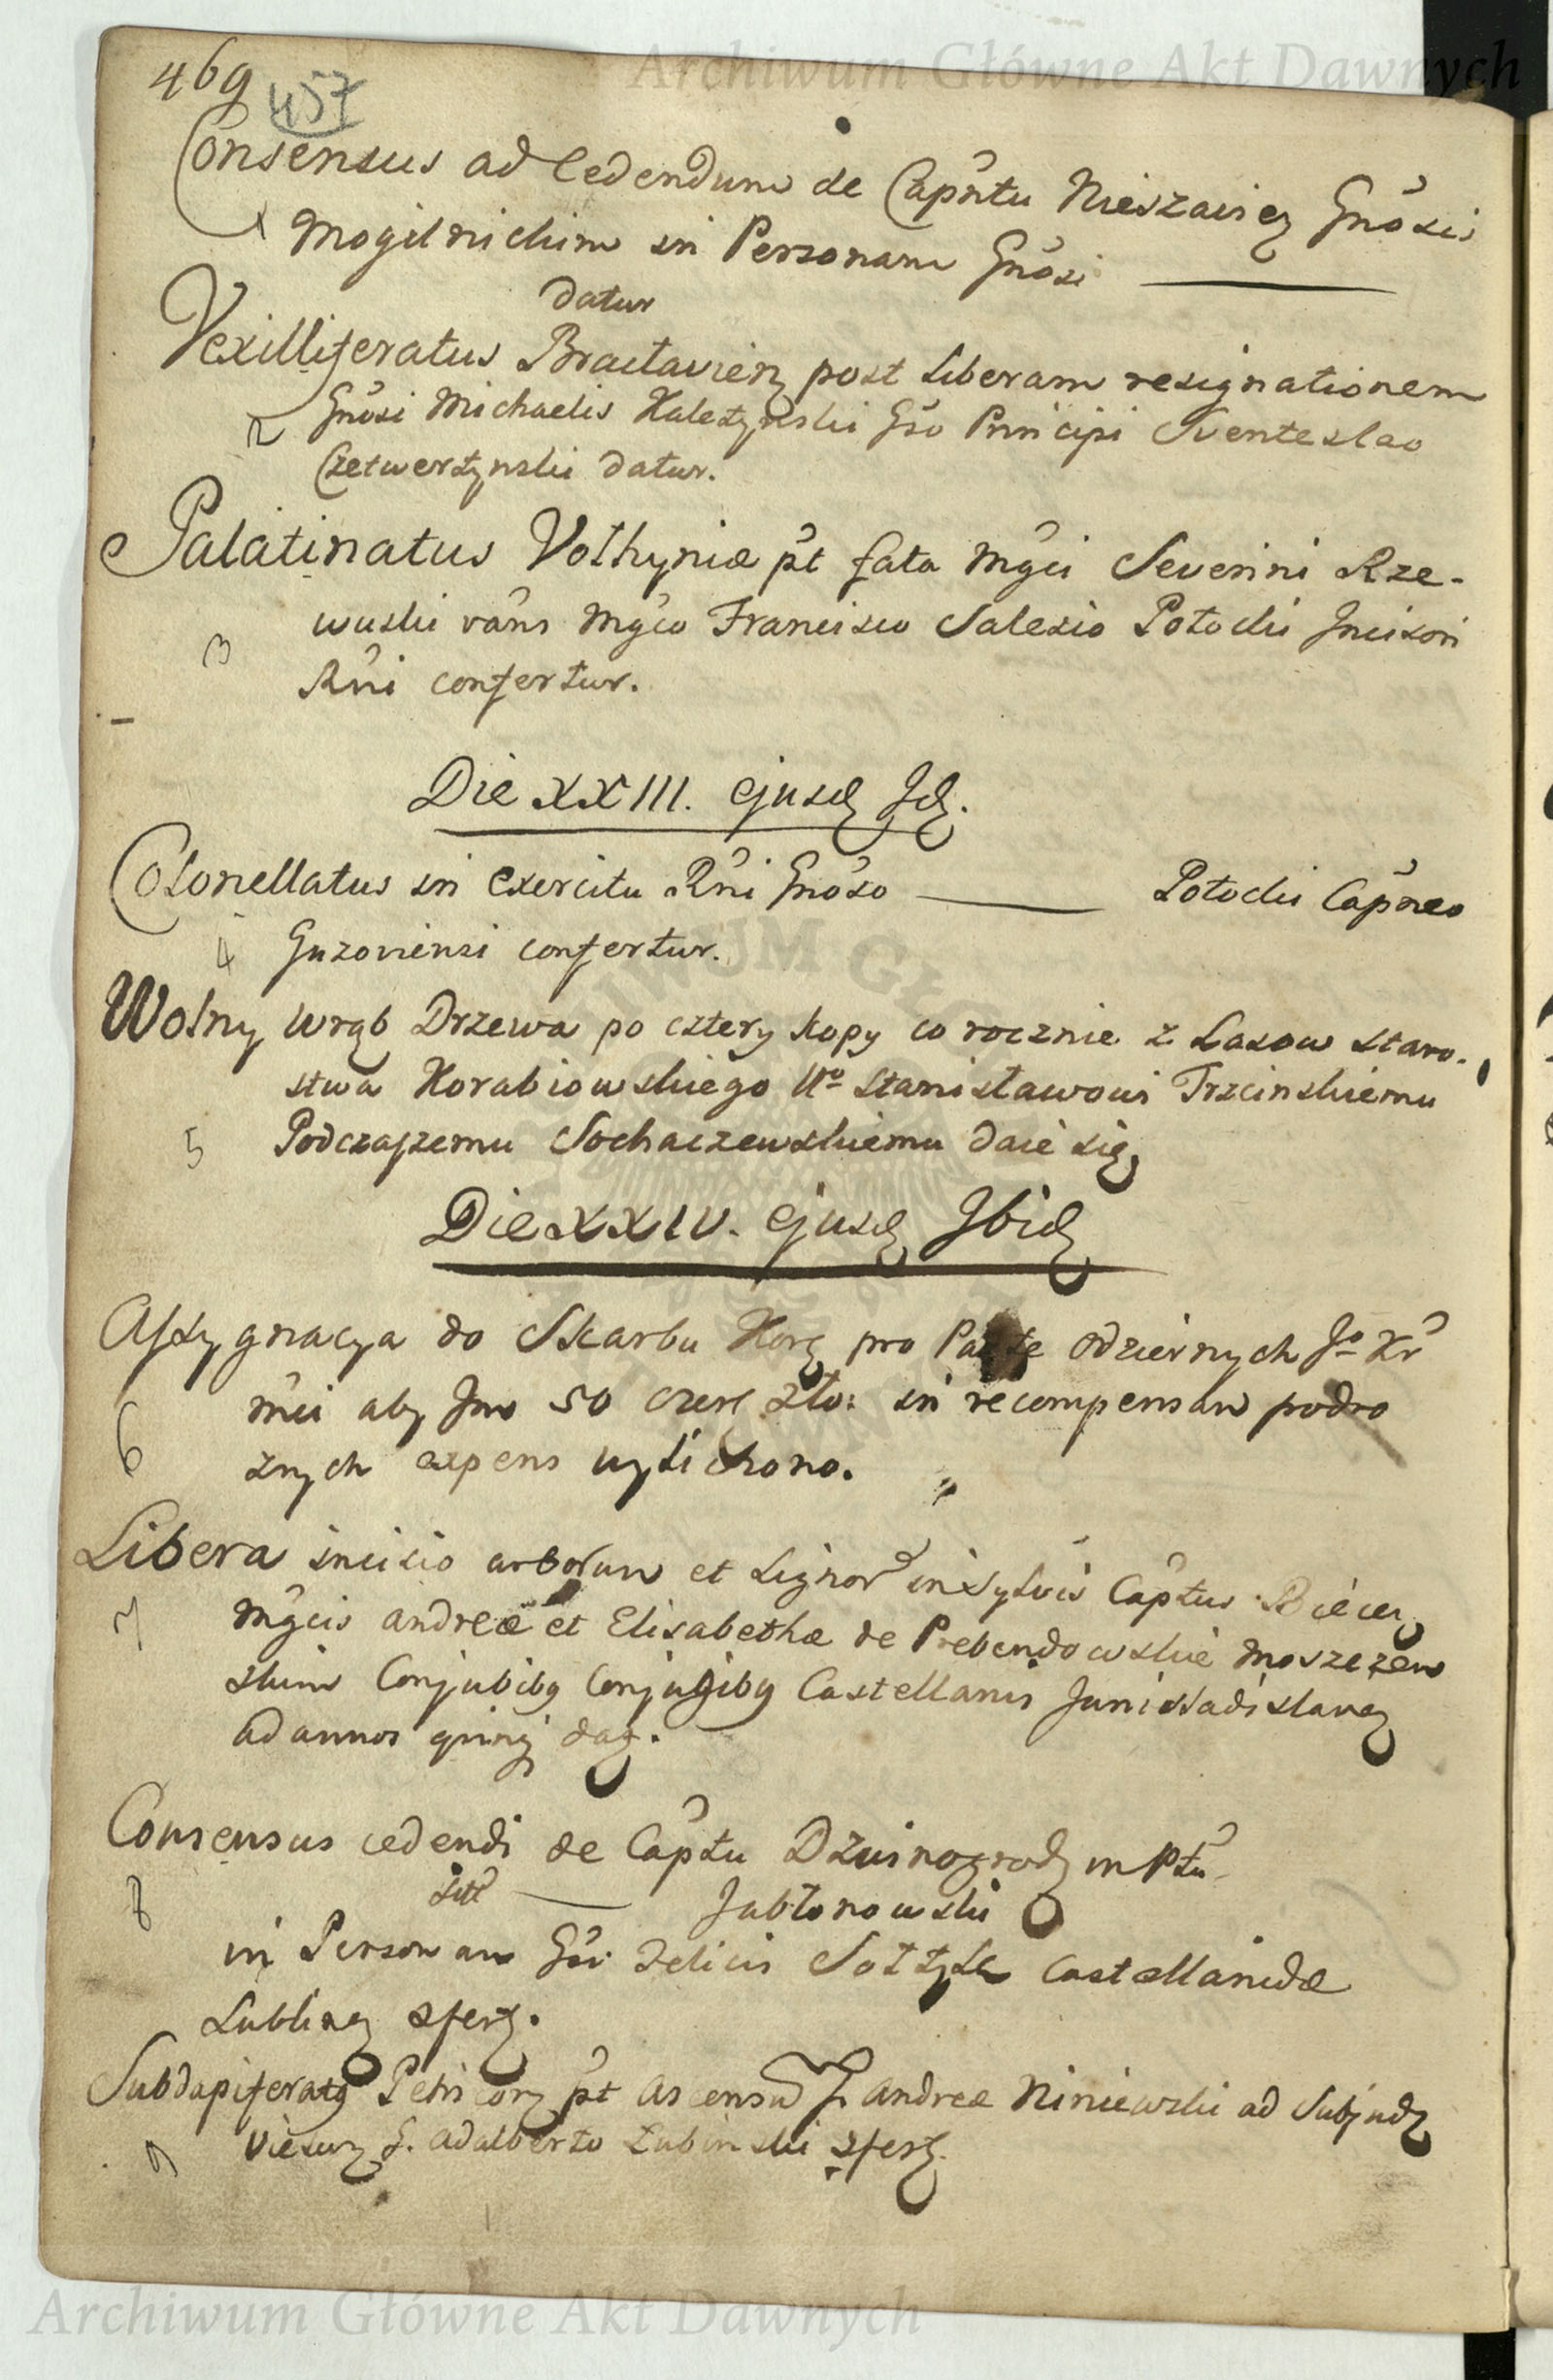 Archiwum Główne Akt Dawnych
469
457
Consensus ad Cedendum de Capntu Nieszavien Gnosis
1 Mogilnickim in Personam Gnosi
datur
Vexilliferatus Braclavien post liberam resignationem
2 Gnosi Michaelis Kaletynski Gso Principi Sventeslao
Czetwertynski datur.
Palatinatus Volhyniæ pt fata Mgci Severini Rze-
3 wuski vans Mgco Francisco Salesio Potocki Incisori
Rni confertur.
Die XXIII. ejusd Id.
Colonellatus in Exercitu Rni Gnoso Potocki Capneo
4 Guzoviensi confertur.
Wolny Wrąb Drzewa po cztery kopy co rocznie z Lasow staro-
stwa Korabiowskiego Uo Stanisławowi Trzcinskiemu
5 Podczaszemu Sochaczewskiemu daie się
Die XXIV. ejusd Ibid
Assygnacya do Skarbu Kor pro Parte odziernych Jo Kr
6 mci aby Imo 50 czer zło: in recompensam podro
znych expens wyliczono.
Libera incisio arborum et Lignor in Sylvis Captus Biecen
7 Mgcis Andreæ et Elisabethæ de Prebendowskie Moszczen
skim Conjubibg Conjugibg Castellanis Juni Wladislaven
ad annos quinq dag.
Consensus cedendi de Captu Dzwinogrod in Ptu
8 Jabłonowski
in Personam Gsi Felicis Sołtyk Castellanidæ
Lublinen sfert.
Subdapiferatg Petricov pt Ascensu G. Andreæ Niniewski ad Subjud
9 Vielun G. Adalberto Łubinski sfert.
Archiwum Główne Akt Dawnych